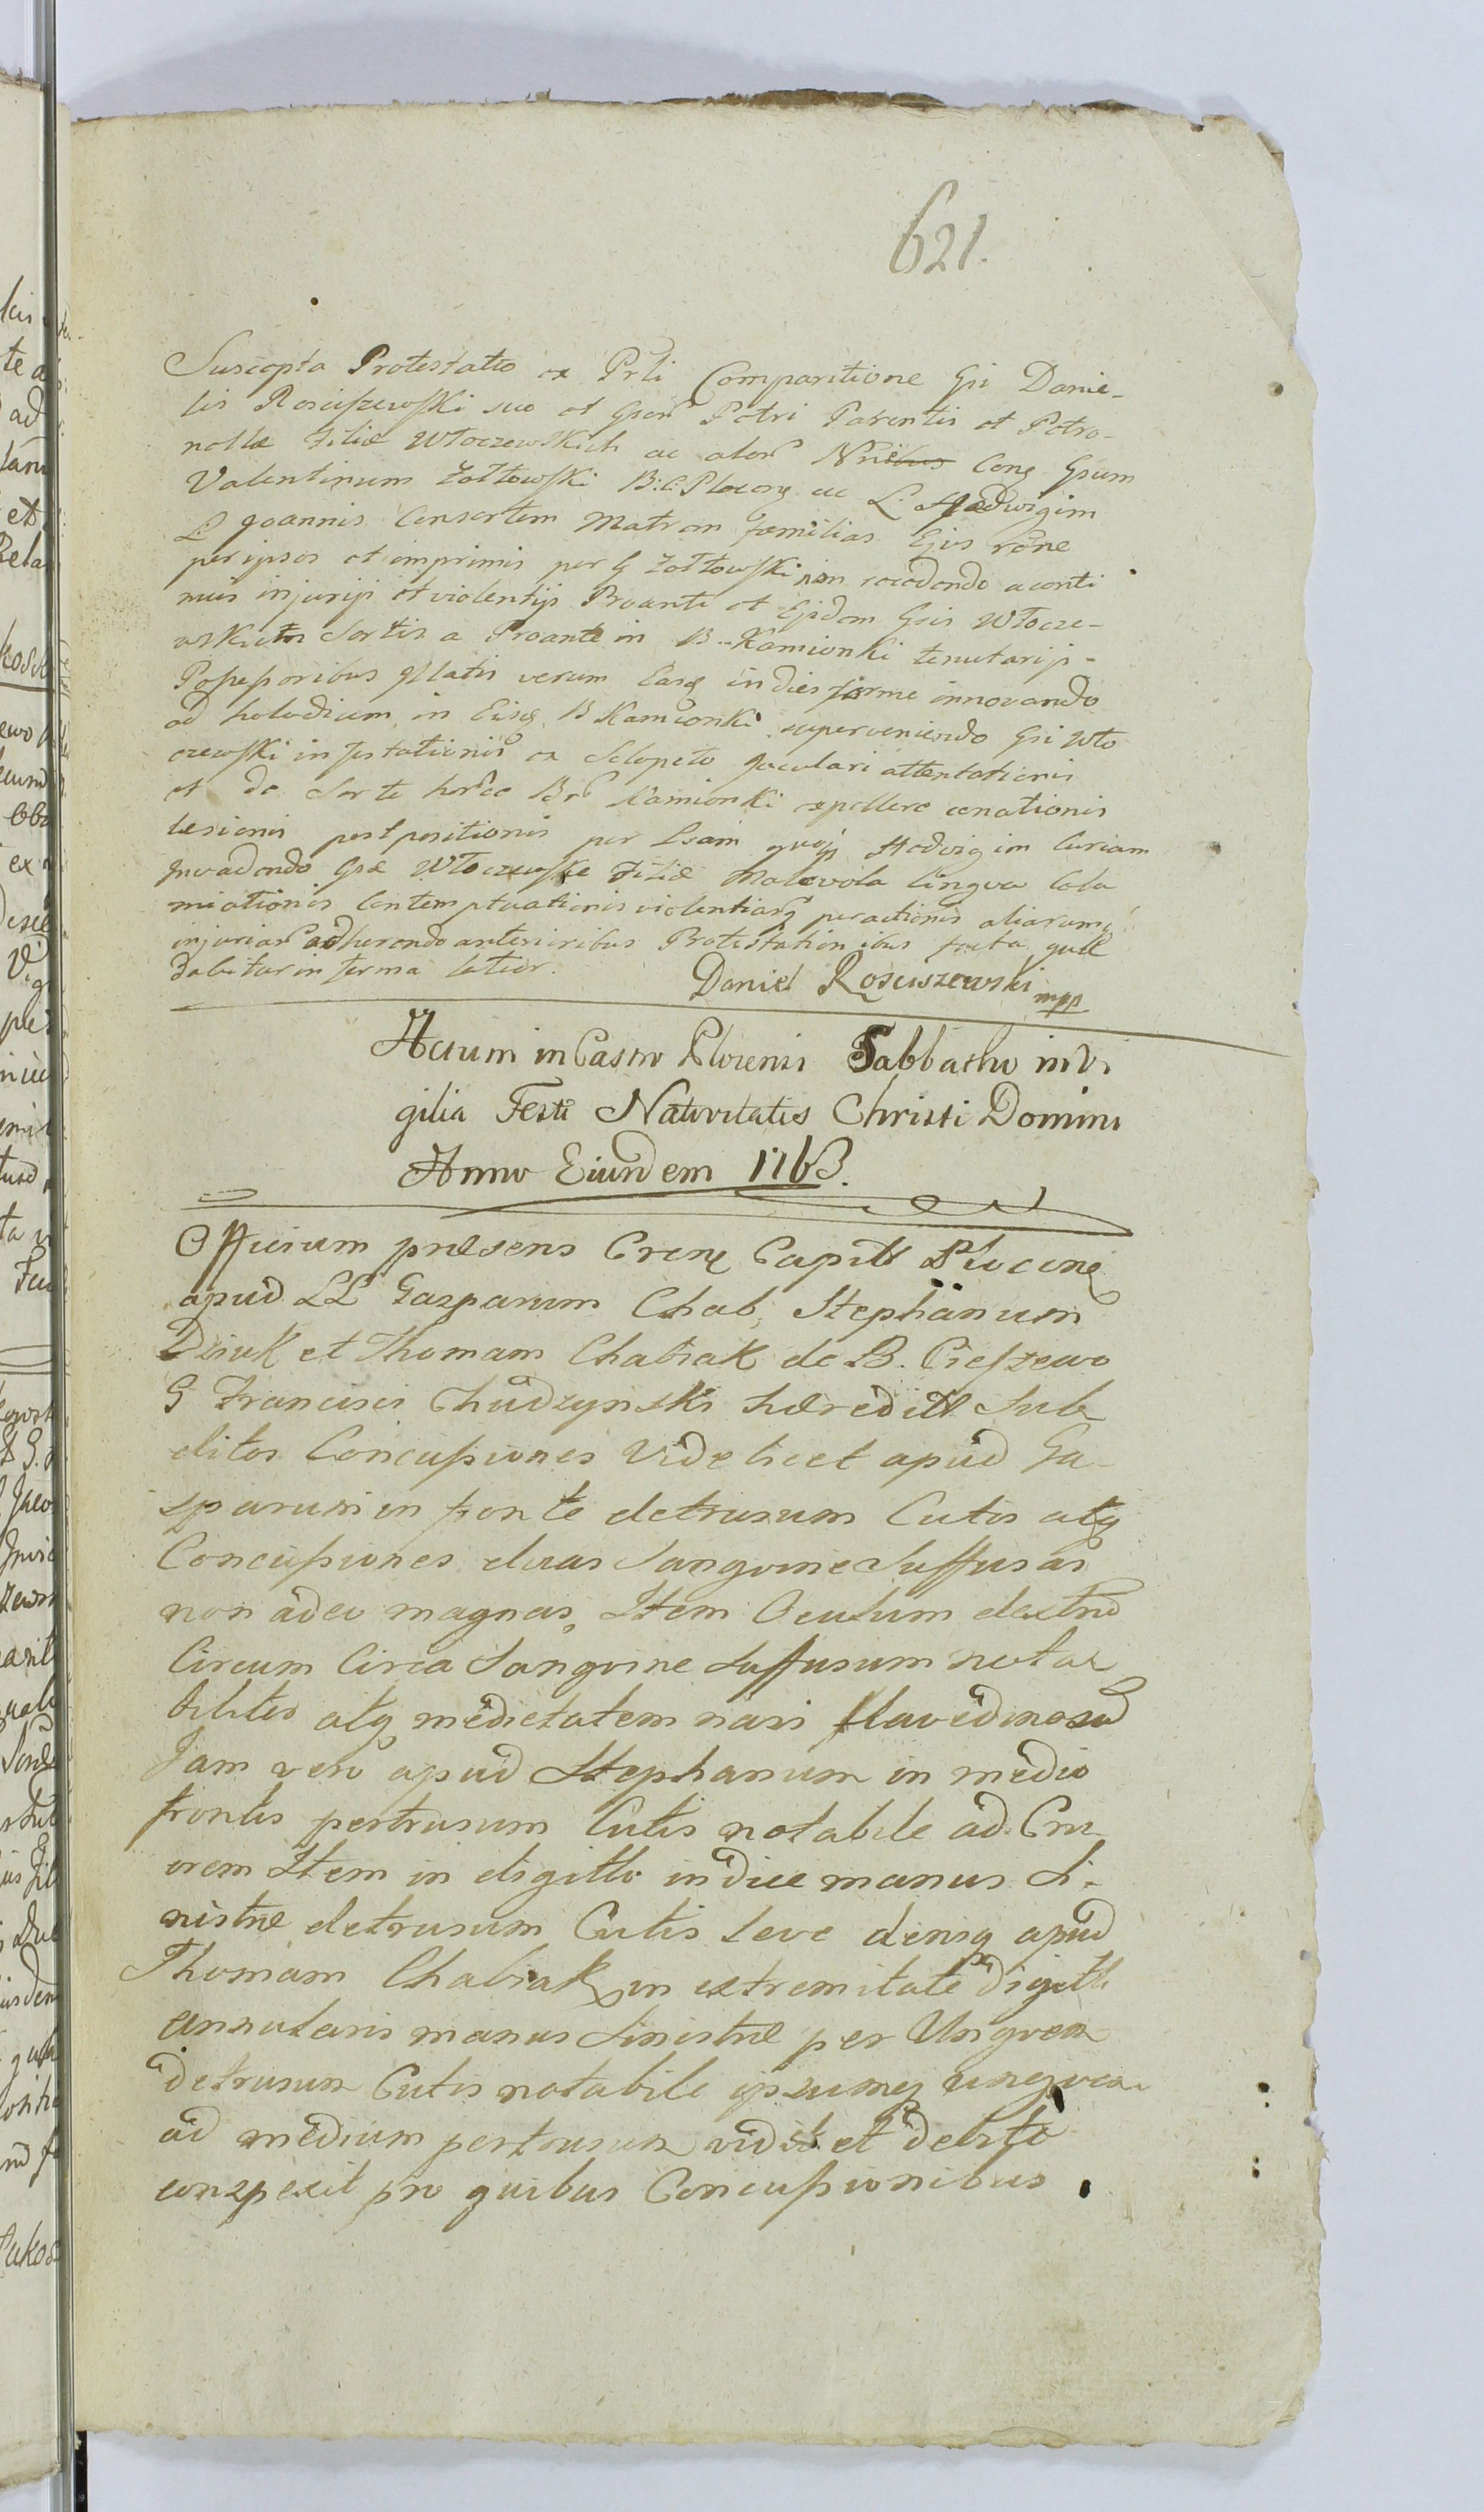 621.
Suscepta Protestatio ex Prli Comparitione Gsi Danie-
lis Rosciszewski suo et Gsor Petri Parentis et Petro-
nellæ Filiæ Włoczewskich ac alor Nrïebus Cone Gsum
Valentinum Zołtowski B: C: Plocens ac L. Hedvigim
L. Joannis Consortem Matrem familias Ejus rône
per ipsos et imprimis per G Zołtowski non recedendo a conti
nuis injurijs et violentijs Proanti et Ejsdem Gsis Włocze-
wskich Sortis a Proante in B. Kamionki tenutarijs-
Possessoribus illatis verum Easq in dies ferme innovando
ad holodium in Eisq B Kamionki superveniendo Gsi Wło
czewski infestationis ex Sclopeto Jaculari attentationis
et de Sorte horce Br Kamionki expellere conationis
lesionis postpositionis per Lsam quoq Hedvigim Curiam
Invadendo Gsæ Włoczewskæ Filiæ Malevola lingva Calu
miationis Contemptuationis violentiarq peractionis aliarumq
injuriar adherendo anterioribus Protestationibus facta quæ
dabitur in forma latior.
Daniel Rosciszewski mpp
Actum in Castro Plocensi Sabbatho in Vi
gilia Festi Nativitatis Christi Domini
Anno Eiusdem 1763.
Officium præsens Crense Capitle Plocense
apud LL Gasparum Chab, Stephanum
Dziuk et Thomam Chabiak de B. Cieszewo
G Francisci Chudzynski hæreditl Sub
ditos Concussiones Videlicet apud Ga-
sparum in fronte detrusum Cutis atq
Concussiones duas Sangvine Suffusas
non adeo magnas, Item Oculum dextru
Circum Circa Sangvine Suffusum nota
bilitis atq medietatem nasi flavedinosa
Jam vero apud Stephanum in medio
frontis pertrusum Cutis notabile ad Cru
orem Item in digitto indice manus Si-
nistræ detrusum Cutis leve densq apud
Thomam Chabiak in extremitate digitti
annularis manus Sinistræ per Ungvem
detrusum Cutis notabile ipsumq ungvem
ad medium pertrusum vidit et debite
conspexit pro quibus Concussionibus